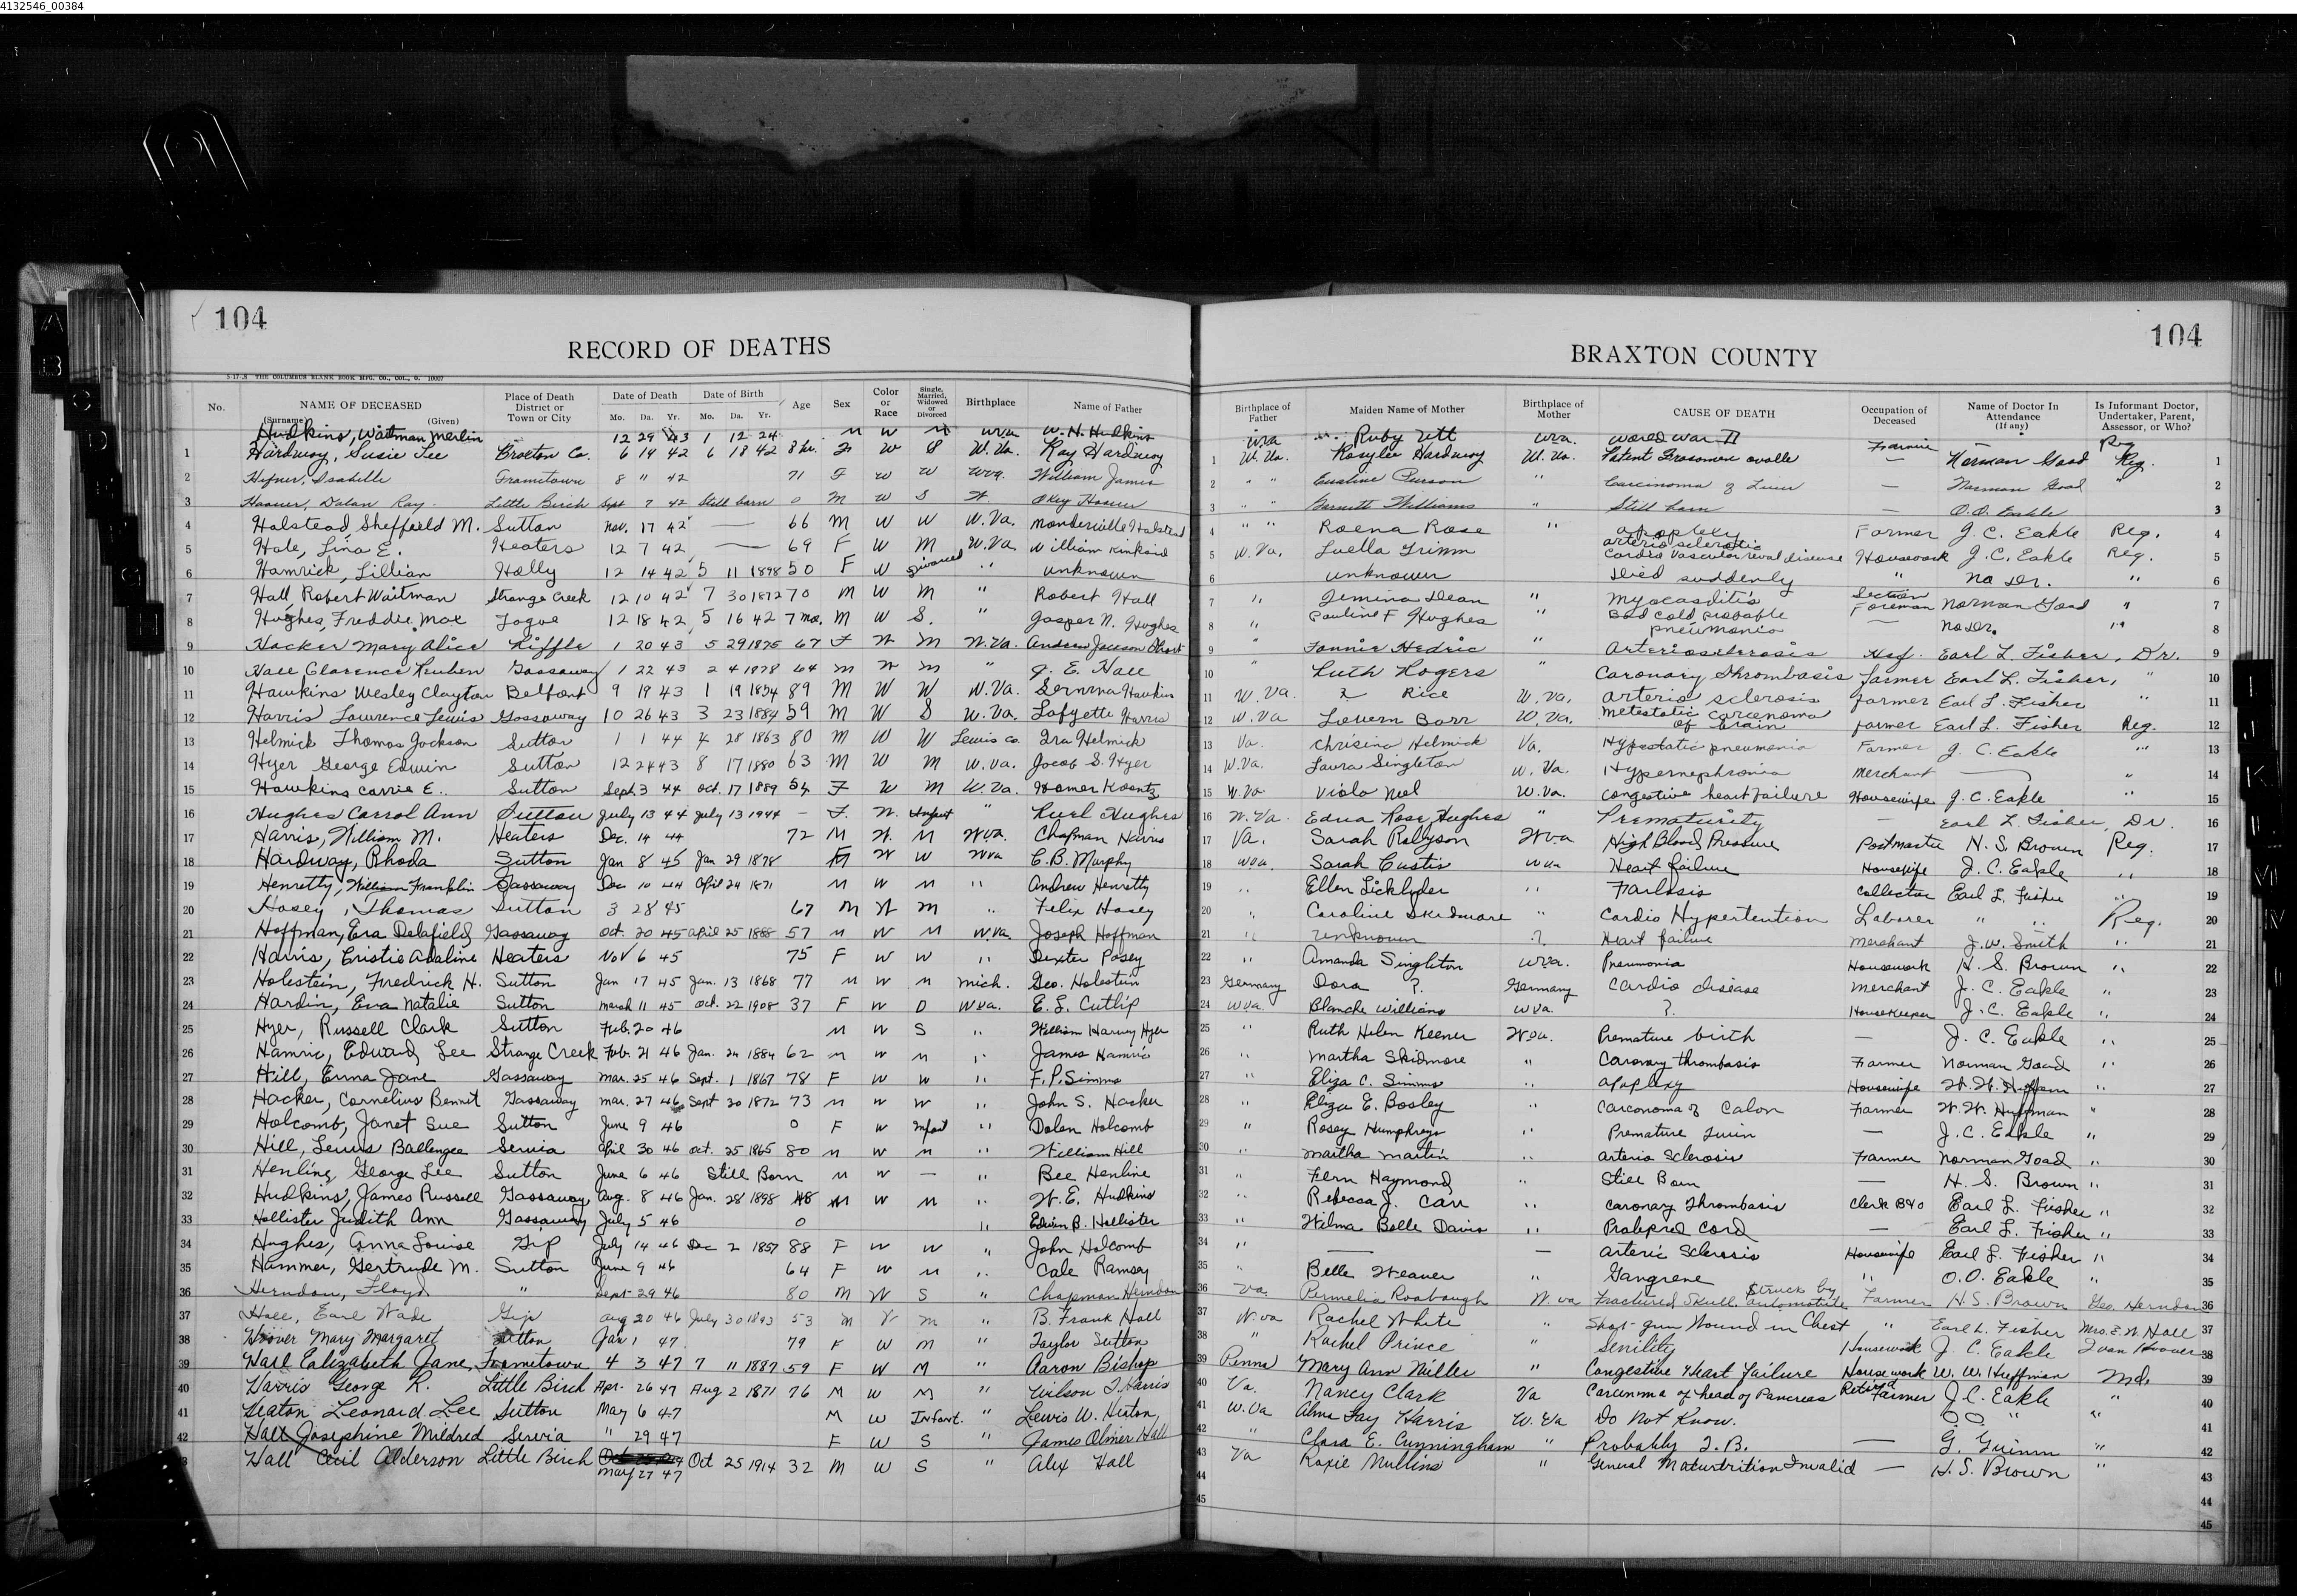 4132546_00384
104
RECORD OF DEATHS
5-17-8 THE COLUMBUS BLANK BOOK MFG. CO., COL., O. 10007
No. NAME OF DECEASED (Surname) (Given) Place of Death District or Town or City Date of Death Mo. Da. Yr. Date of Birth Mo. Da. Yr. Age Sex Color or Race Single, Married, Widowed or Divorced Birthplace Name of Father
Hudkins, Waitman Merlin 12 29 43 1 12 24 M W M W.Va W. H. Hudkins
1 Hardway, Susie Lee Braxton Co. 6 19 42 6 18 42 8 hr. F W S W. Va. Ray Hardway
2 Hefner, Isabelle Frametown 8 11 42 71 F W W W.Va. William James
3 Hoover, Dalan Ray Little Birch Sept 7 42 Still born 0 M W S Okey Hoover
4 Halstead, Sheffield M. Sutton Nov. 17 42 — 66 M W W W. Va. Monderville Halstead
5 Hale, Lina E. Heaters 12 7 42 — 69 F W M W. Va. William Kinkaid
6 Hamrick, Lillian Holly 12 14 42 5 11 1898 50 F W Divorced " unknown
7 Hall, Robert Waitman Strange Creek 12 10 42 7 30 1872 70 M W M " Robert Hall
8 Hughes, Freddie Mae 12 18 42 5 16 42 7 mo. M W S. " Jasper N. Hughes
9 Hacker Mary Alice Riffle 1 20 43 5 29 1875 67 F W M W. Va. Andrew Jackson
10 Hall Clarence Reuben Gassaway 1 22 43 2 4 1878 64 M W M " J. E. Hall
11 Hawkins Wesley Clayton Belfont 9 19 43 1 19 1854 89 M W W W. Va. Hawkins
12 Harris Lawrence Lewis Gassaway 10 26 43 3 23 1884 59 M W S W. Va. Lafyette Harris
13 Helmick Thomas Jackson Sutton 1 1 44 4 28 1863 80 M W W Lewis Co. Ira Helmick
14 Hyer George Edwin Sutton 12 24 43 8 17 1880 63 M W M W. Va. Jacob S. Hyer
15 Hawkins Carrie E. Sutton Sept. 3 44 Oct. 17 1889 54 F W M W. Va. Homer Koontz
16 Hughes Carrol Ann Sutton July 13 44 July 13 1944 — F. W. Infant " Ruel Hughes
17 Harris, William M. Heaters Dec. 14 44 72 M W. M W.Va. Chapman Harris
18 Hardway, Rhoda Sutton Jan 8 45 Jan 29 1878 F W W W.Va C. B. Murphy
19 Henretty, William Franklin Gassaway Dec 10 44 April 24 1871 M W M " Andrew Henretty
20 Hosey, Thomas Sutton 3 28 45 67 M W M " Felix Hosey
21 Hoffman, Era Delafield Gassaway Oct. 20 45 April 25 1888 57 M W M W.Va. Joseph Hoffman
22 Harris, Cristie Adaline Heaters Nov 6 45 75 F W W " Dexter Posey
23 Holestein, Fredrick H. Sutton Jan 17 45 Jan. 13 1868 77 M W M Mich. Geo. Holestein
24 Hardin, Eva Natalie Sutton March 11 45 Oct. 22 1908 37 F W D W.Va. E. L. Cutlip
25 Hyer, Russell Clark Sutton Feb. 20 46 M W S " William Harvey Hyer
26 Hamric, Edward Lee Strange Creek Feb. 21 46 Jan. 24 1884 62 M W M " James Hamric
27 Hill, Erma Jane Gassaway Mar. 25 46 Sept. 1 1867 78 F W W " F. P. Simms
28 Hacker, Cornelius Bennit Gassaway Mar. 27 46 Sept 20 1872 73 M W W " John S. Hacker
29 Holcomb, Janet Sue Sutton June 9 46 0 F W Infant " Dolen Holcomb
30 Hill, Lewis Ballengee Servia April 30 46 Oct. 25 1865 80 M W M " William Hill
31 Henline, George Lee Sutton June 6 46 Still Born M W — " Bee Henline
32 Hudkins, James Russell Gassaway Aug. 8 46 Jan. 28 1898 48 M W M " W. E. Hudkins
33 Hollister Judith Ann Gassaway July 5 46 0 " Edwin B. Hollister
34 Hughes, Anna Louise Gip July 14 46 Dec 2 1857 88 F W W " John Holcomb
35 Hummer, Gertrude M. Sutton June 9 46 64 F W M " Cale Ramsey
36 Herndon, Floyd " Sept 29 46 80 M W S " Chapman Herndon
37 Hall, Earl Wade Gip Aug 20 46 July 30 1893 53 M W M " B. Frank Hall
38 Hoover Mary Margaret Sutton Jan 1 47 79 F W M " Taylor Sutton
39 Hall Ealizabeth Jane, Frametown 4 3 47 7 11 1887 59 F W M " Aaron Bishop
40 Harris George R. Little Birch Apr. 26 47 Aug 2 1871 76 M W M " Wilson T. Harris
41 Heaton Leonard Lee Sutton May 6 47 M W Infant. " Lewis W. Heaton
42 Hall Josephine Mildred Servia " 29 47 F W S " James Olmer Hall
Hall Cecil Alderson Little Birch May 27 47 Oct 25 1914 32 M W S " Alex Hall
104
BRAXTON COUNTY
Birthplace of Father Maiden Name of Mother Birthplace of Mother CAUSE OF DEATH Occupation of Deceased Name of Doctor In Attendance (If any) Is Informant Doctor, Undertaker, Parent, Assessor, or Who?
W.Va Ruby Utt W.Va. World War II Farmer Reg
1 W. Va. Rosylee Hardway W. Va. Patent Foramen ovalle — Norman Goad Reg. 1
2 " " Emaline Purson " Carcinoma of Liver — Norman Goad " 2
3 " Williams " Still born — O.O. Eakle 3
4 " " Roena Rose " apoplexy Farmer J. C. Eakle Reg. 4
5 W. Va. Luella Grimm arterio sclerotic cardio vascular renal disease Housework J. C. Eakle Reg. 5
6 unknown Died suddenly " No Dr. " 6
7 " Jemina Dean " Myocarditis Section Foreman Norman Goad " 7
8 " Pauline F Hughes " Bad cold probable pneumonia — No Dr. " 8
9 " Fannie Hedric " Arteriosclerosis Earl L. Fisher, Dr. 9
10 " Ruth Rogers " Coronary Thrombasis farmer Earl L. Fisher, " 10
11 W. Va. ? Rice W. Va. Arterio sclerosis farmer Earl L. Fisher " 11
12 W. Va Lovern Barr W. Va. Metestatic carcenoma of brain farmer Earl L. Fisher Reg. 12
13 Va. Chrisina Helmick Va. Hypostatic pneumonia Farmer J. C. Eakle " 13
14 W. Va. Laura Singleton W. Va. Hypernephronia Merchant — " 14
15 W. Va Viola Neel W. Va. Congestive heart failure Housewife J. C. Eakle " 15
16 W. Va. Edna Rose Hughes " Prematurity — Earl L. Fisher, Dr. 16
17 Va. Sarah W.Va High Blood Pressure Postmaster H. S. Brown Reg. 17
18 W.Va. Sarah Custis W.Va Heart failure Housewife J. C. Eakle " 18
19 " Ellen Licklyder " Collector Earl L. Fisher " 19
20 " Caroline Skidmore " Cardio Hypertention Laborer " " Reg. 20
21 " Unknown ? Heart failure Merchant J. W. Smith " 21
22 " Amanda Singleton W.Va. Pneumonia Housework H. S. Brown " 22
23 Germany Dora ? Germany Cardio disease Merchant J. C. Eakle " 23
24 W.Va. Blanche Williams W.Va. ? Housekeeper J. C. Eakle " 24
25 " Ruth Helen Keener W.Va. Premature birth — J. C. Eakle " 25
26 " Martha Skidmore " Coronary thrombosis Farmer Norman Goad " 26
27 " Eliza C. Simms " apoplexy Housewife W. W. Huffman " 27
28 " Eliza E. Bosley " Carconoma of Calon Farmer W. W. Huffman " 28
29 " Rosey Humphreys " Premature twin — J. C. Eakle " 29
30 " Martha Martin " Arterio Sclerosis Farmer Norman Goad " 30
31 " Fern Haymond " Still Born — H. S. Brown " 31
32 " Rebecca J. Carr " Coronary Thrombosis Clerk B&O Earl L. Fisher " 32
33 " Wilma Belle Davis " Prolepred Cord — Earl L. Fisher " 33
34 " — — Arterio Sclerosis Housewife Earl L. Fisher " 34
35 " Belle Weaver " Gangrene " O. O. Eakle " 35
36 Va. Permelia Roabaugh W. Va Fractured Skull. Struck by automobile Farmer H. S. Brown Geo. Herndon 36
37 W.Va Rachel White " Shot-gun Wound in Chest " Earl L. Fisher Mrs. E. W. Hall 37
38 " Rachel Prince " Senility Housework J. C. Eakle Ivan Hoover 38
39 Penna Mary Ann Miller " Congestive Heart Failure Housework W. W. Huffman Md. 39
40 Va. Nancy Clark Va Carcinoma of head of Pancreas Retired Farmer J. C. Eakle " 40
41 W. Va Alma Fay Harris W. Va Do Not Know. " " 41
42 " Clara E. Cunningham " Probably T. B. — G. Guinn " 42
43 Va Roxie Mullins " General Maturtrition Invalid — H. S. Brown " 43
44 44
45 45